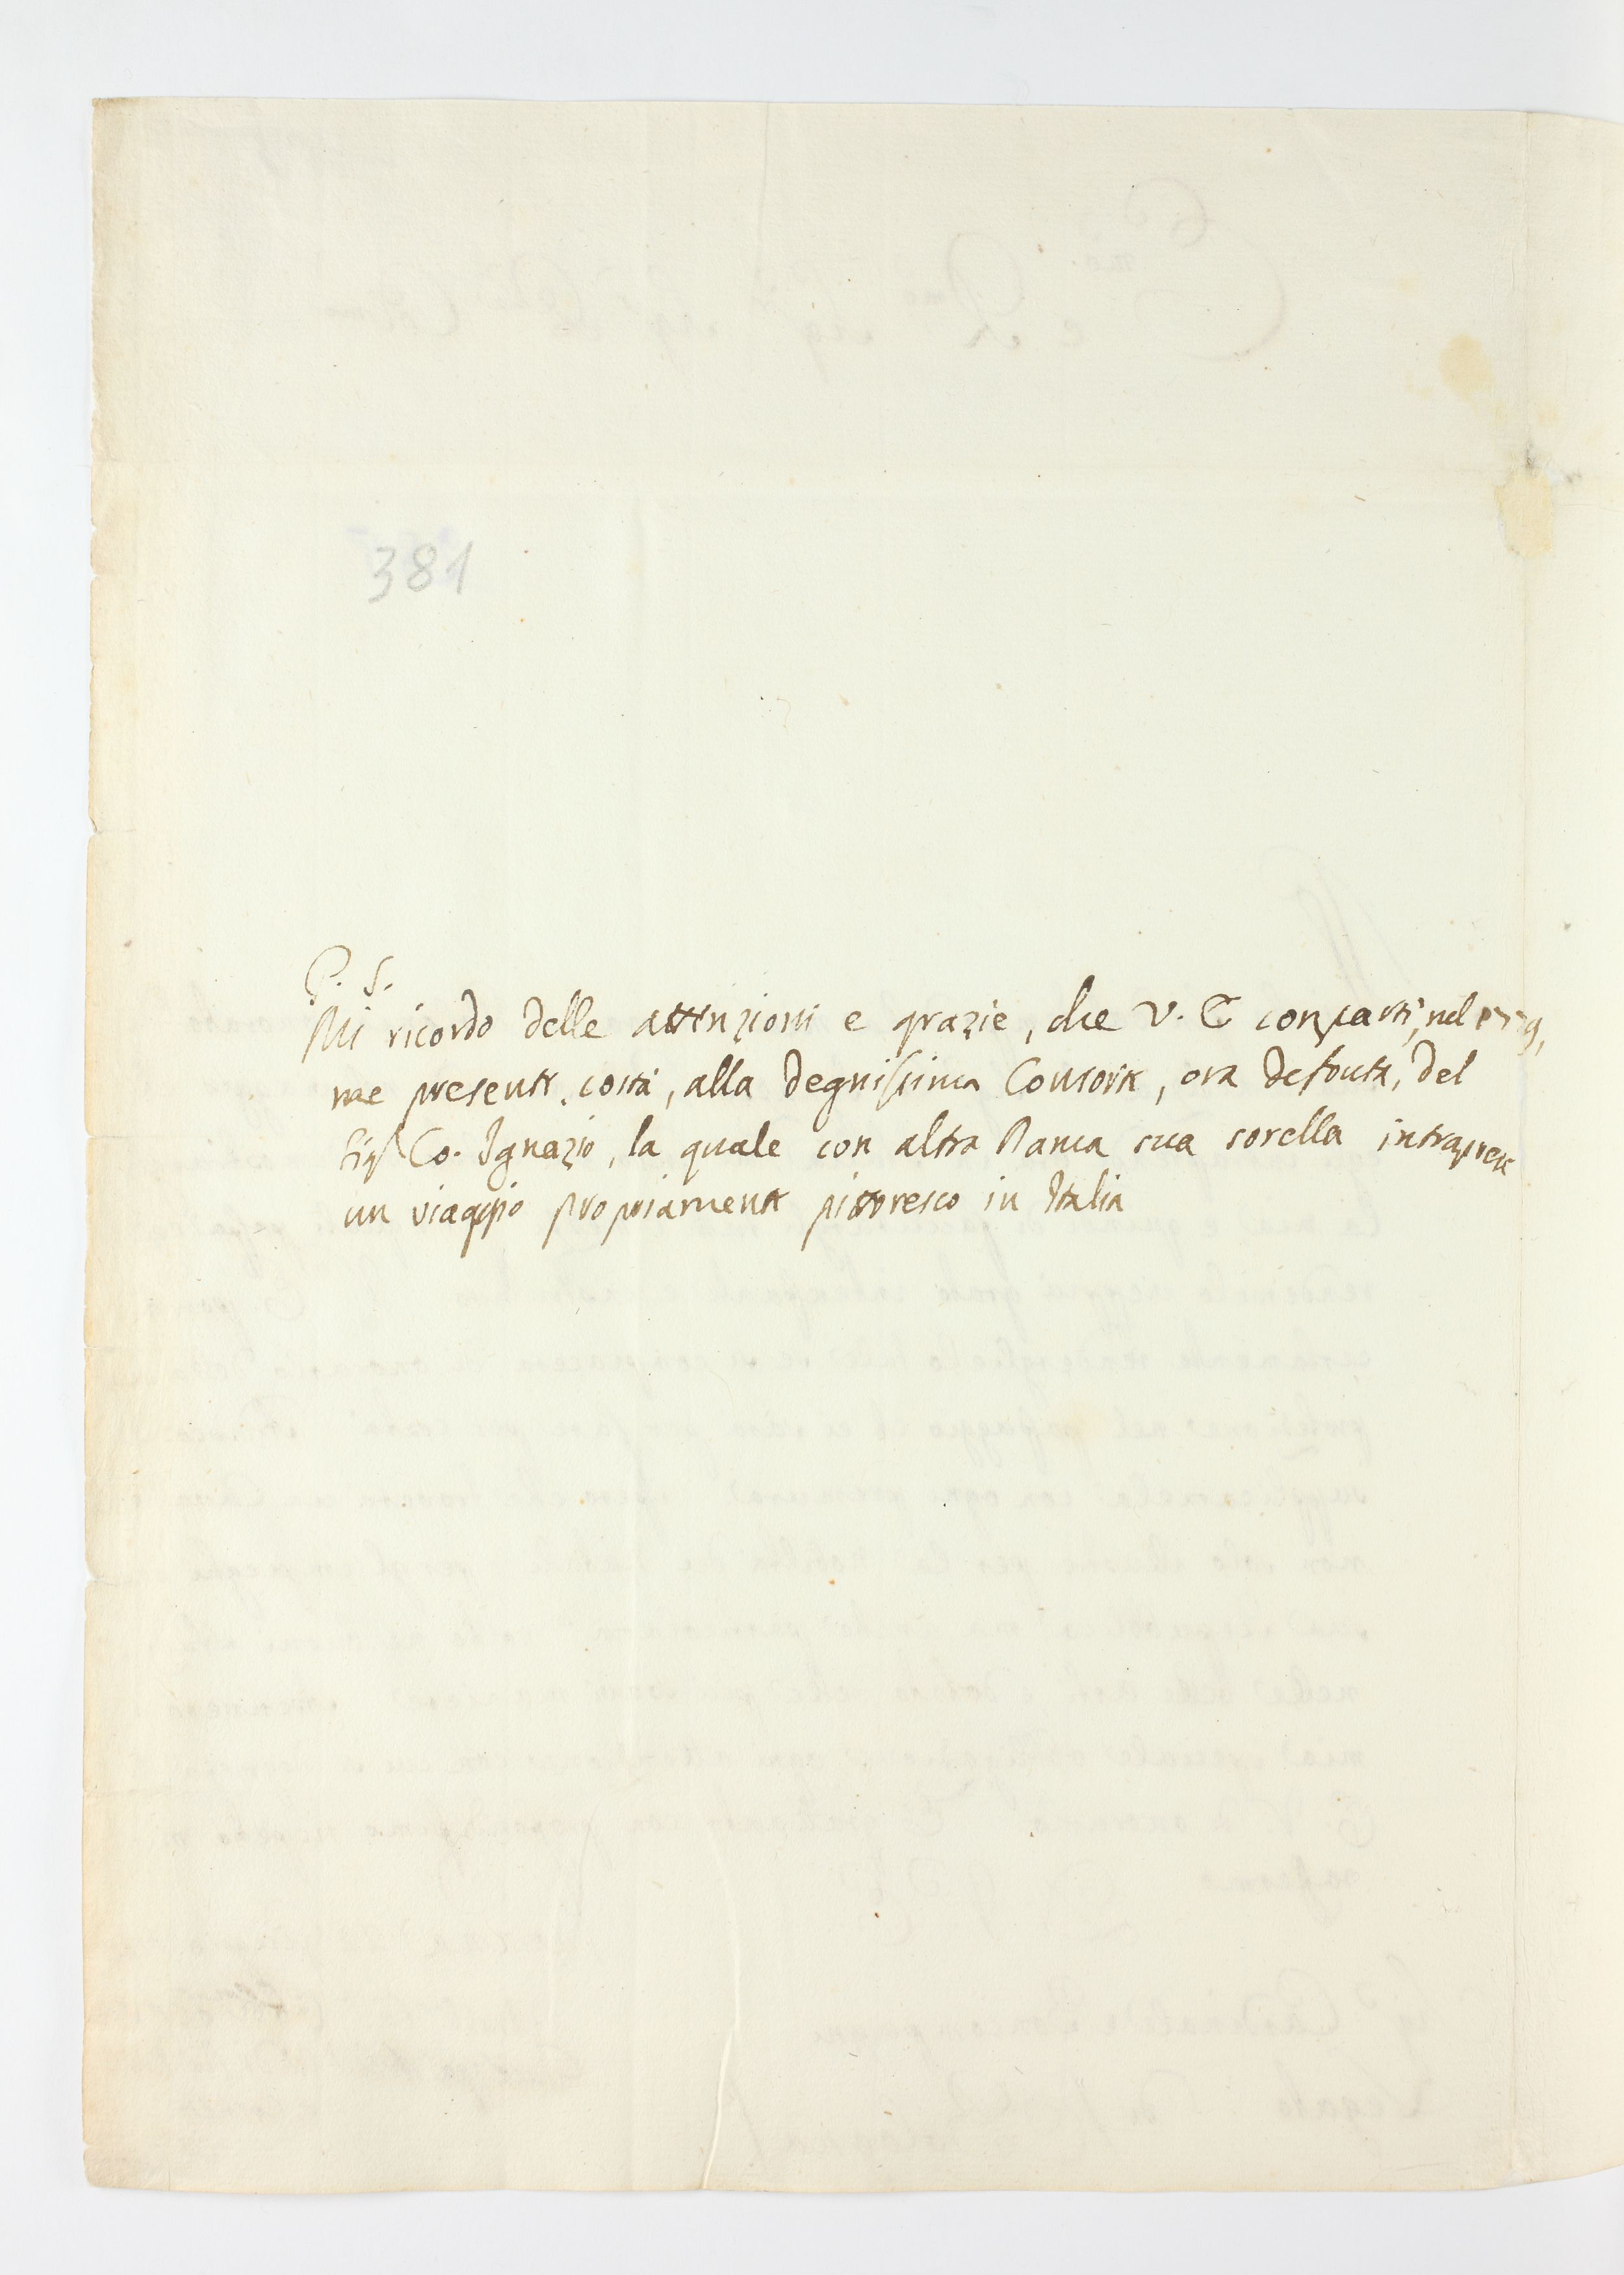 381
P. S.
Mi ricordo delle attenzioni e grazie, che V. E comparti, nel
me presente costà, alla degnissima Consorte, ora defonta, del
Sigr Co. Ignazio, la quale con altra Dama sua sorella intraprese
un viaggio propriamente pittoresco in Italia